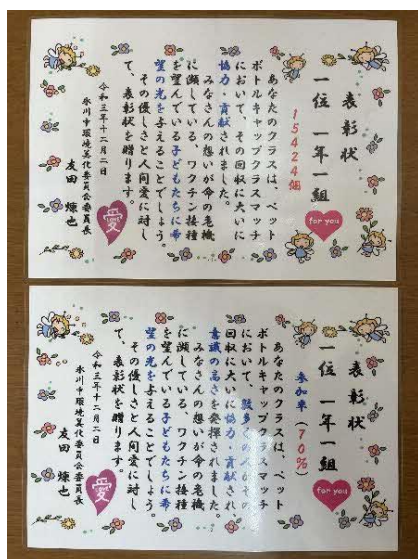 表彰状
一位 一年一組
15424個
for you
あなたのクラスは、ペット
ボトルキャップクラスマッチ
において、その回収に大いに
協力・貢献されました。
みなさんの想いが命の危機
に瀕している、ワクチン接種
を望んでいる子どもたちに希
望の光を与えることでしょう。
その優しさと人間愛に対し
て、表彰状を贈ります。
愛
令和三年十二月二日
氷川中環境美化委員会委員長
友田 煉也
表彰状
一位 一年一組
参加率(70%)
for you
あなたのクラスは、ペット
ボトルキャップクラスマッチ
において、数多くの人がその
回収に大いに協力・貢献され、
意識の高さを発揮されました。
みなさんの想いが命の危機
に瀕している、ワクチン接種
を望んでいる子どもたちに希
望の光を与えることでしょう。
その優しさと人間愛に対し
て、表彰状を贈ります。
愛
令和三年十二月二日
氷川中環境美化委員会委員長
友田 煉也